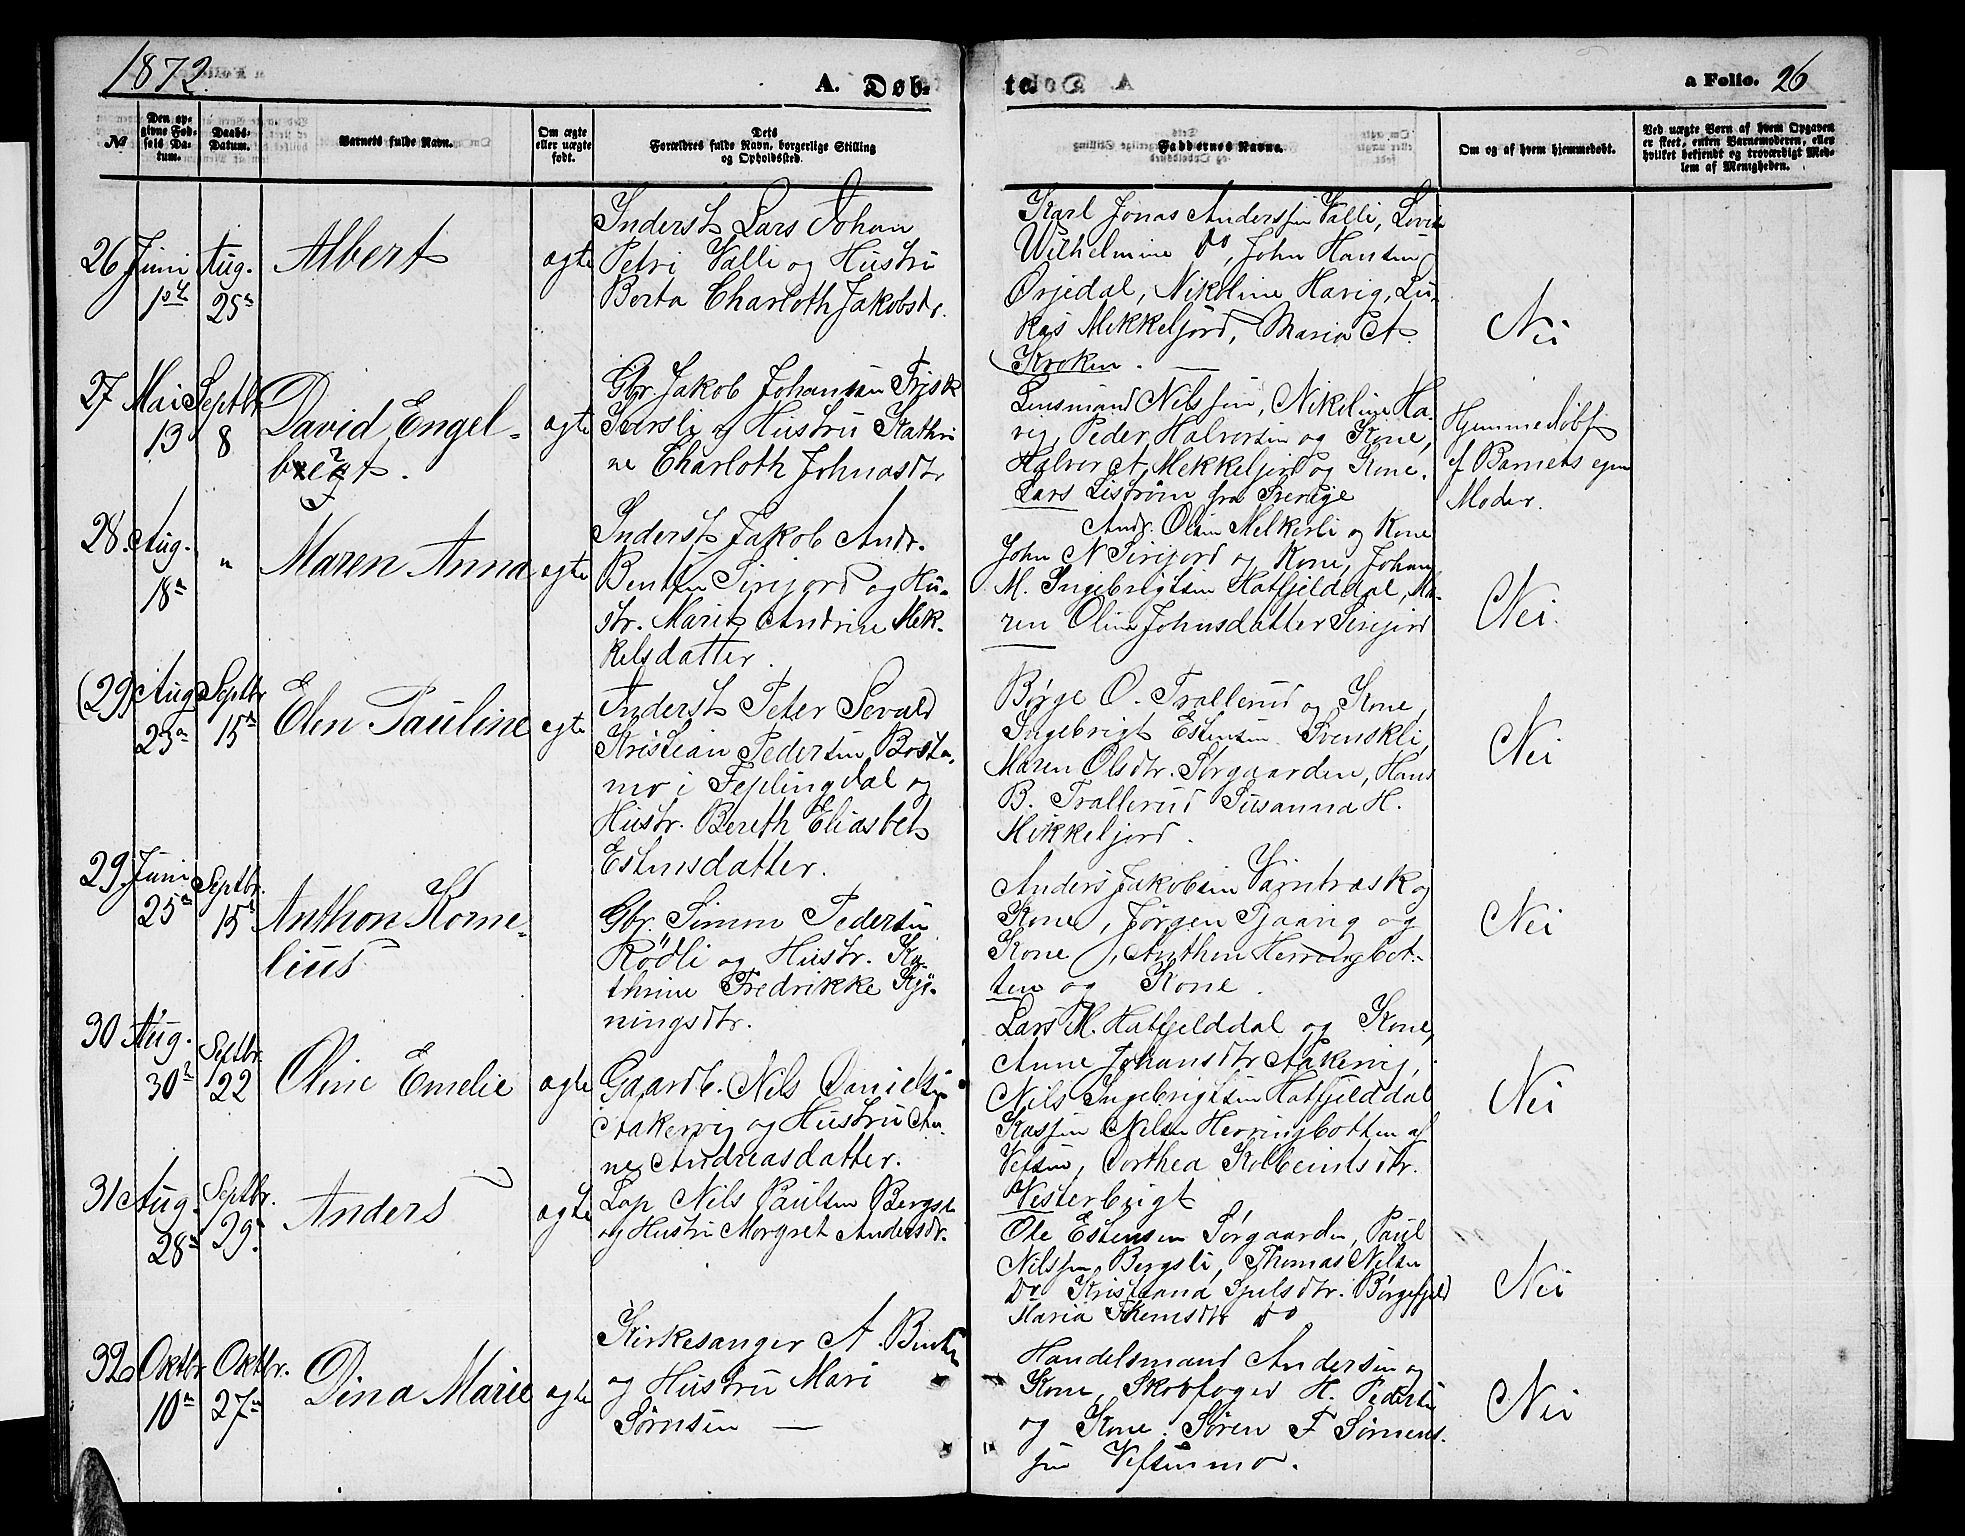 1872.
A. Døb-
te.
a Folio. 26
№
Den op-
givne Fød-
sels Da-
tum.
Daabs-
Datum.
Barnets fulde Navn.
Om ægte
eller uægte
født.
Dets
Forældres fulde Navn, borgerlige Stilling
og Opholdssted.
Faddernes Navne.
Om og af hvem hjemmedøbt.
Ved uægte Børn af hvem Opgaven
er skeet, enten Barnemoderen, eller
hvilket bekjendt og troværdigt Med-
lem af Menigheden.
26 Juni Aug. Albert ægte
25de
Inderst Lars Johan
Petri Valli og Hustru
Berta Charloth Jakobsdr.
Karl Jonas Anderssen Valli,
Wilhelmine Do, John Hansen
Ørjedal, Nikoline Havig, Lu-
kas Mikkeljord, Maria A
Kroken.
Nei
27 Mai Septbr
13 8
David Engel-
ægte
Gbr. Jakob Johansen Frisk
og Hustru Kathri
ne Charloth Johnasdtr
Lensmand Nilssen, Nikoline Ha-
vig, Peder Halvorsen og Kone,
Halvor A. Mikkeljord og Kone.
Lars Liström fra Sverige
Hjemmedøbt
af Barnets egen
Moder.
28. Aug. "
18de
Maren Anna ægte
Inderst Jakob Andr.
Bentsen Sirijord og Hu-
str. Marit Andrine Mek-
kelsdatter.
Andr. Olsen Melkerli og Kone
John N Sirijord og Kone, Johan
M. Ingebrigtsen Hatfjelddal, Ma-
ren Olina Johnsdatter Sirijord
Nei.
(29) Aug Septbr
23de 15de
Elen Pauline egte
Inderst Peter Sevald
Kristian Pedersen
mo i Feplingdal og
Hustr. Bereth Eliasbet
Estensdatter.
Børge O. Trallerud og Kone,
Ingebrigt Estensen Svenskli,
Maren Olsdtr. Sørgaarden, Hans
B. Trallerud Susanna H.
Mikkeljord.
Nei
29 Juni Septbr.
25de 15de
Anthon Korne-
lius
Gbr. Simon Pedersen
Rödli og Hustr. Ka-
thrine Fredrikke
ningsdtr.
Anders Jakobsen Varntræsk og
Kone, Jørgen og
Kone, Anthon Herringbot-
ten og Kone.
Nei
30 Aug. Septbr.
30te 22
Oline Emelie ægte
Gaardb. Nils Danielsen
Aakervig og Hustru An-
ne Andreasdatter.
Lars M. Hatfjelddal og Kone,
Anne Johansdtr Aakervig,
Nils Ingebrigtsen Hatfjelddal
Nilsen Herringbotten af
Vefsen, Dorthea
Vesterbugt
Nei
31 Aug. Septbr.
28de 29.
Anders ægte
Lap Nils Paulsen
og Hustru Margret Andersdr.
Ole Estensen Sørgaarden, Paul
Nilssen Bergsli, Thomas Nilsen
Do Kristiana Børgefjeld
Maria do
Nei
32 Oktbr Oktbr.
10de 27de
Dina Marie ægte
Kirkesanger A.
og Hustru Mari
Sørnsen —
Handelsmand Andersen og
Kone, Skovfoged H. Pedersen
og Kone. Søren F Sørnens-
sen Vefsenmo.
Nei